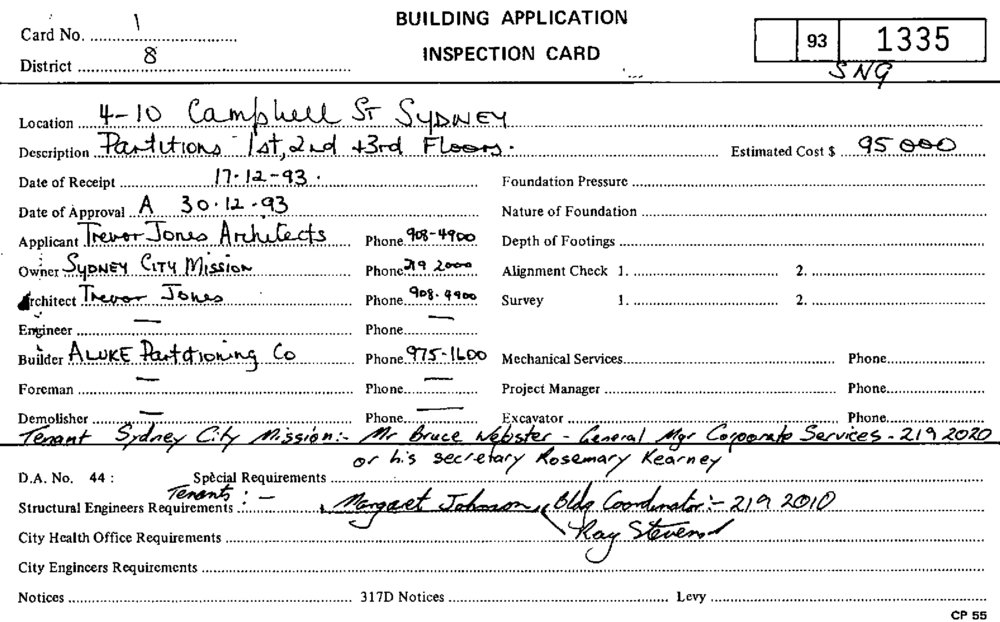 BUILDING APPLICATION
INSPECTION CARD
Card No. 1
District 8
93 1335
SNG
Location 4-10 Campbell St SYDNEY
Description Partitions 1st, 2nd +3rd Floors. Estimated Cost $ 95 000
Date of Receipt 17-12-93. Foundation Pressure
Date of Approval A 30.12.93 Nature of Foundation
Applicant Trevor Jones Architects Phone 908-4900 Depth of Footings
Owner SYDNEY CITY Mission Phone 219 2000 Alignment Check 1. 2.
Architect Trevor Jones Phone 908.4900 Survey 1. 2.
Engineer — Phone —
Builder ALUKE Partitioning Co Phone 975-1600 Mechanical Services Phone
Foreman — Phone — Project Manager Phone
Demolisher — Phone — Excavator Phone
Tenant Sydney City Mission:- Mr Bruce Webster - General Mgr Corporate Services - 219 2020
or his secretary Rosemary Kearney
D.A. No. 44 : Special Requirements
Tenants : -
Structural Engineers Requirements Margaret Johnson, Bldg Coordinator:- 219 2010
City Health Office Requirements Ray Stevens
City Engineers Requirements
Notices 317D Notices Levy
CP 55